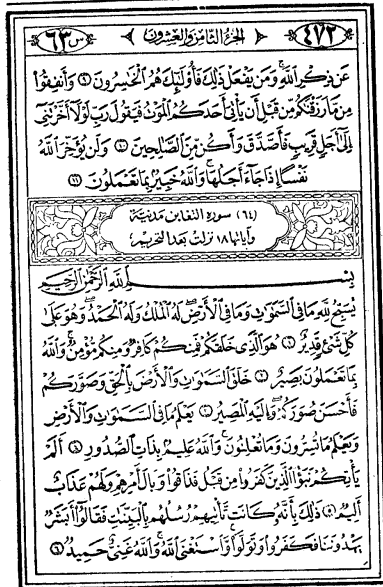 س ٦٣ الجزء الثامن والعشرون ٤٧٢
عَن ذِكْرِ ٱللَّهِ ۚ وَمَن يَفْعَلْ ذَٰلِكَ فَأُو۟لَٰٓئِكَ هُمُ ٱلْخَٰسِرُونَ ٩ وَأَنفِقُوا۟
مِن مَّا رَزَقْنَٰكُم مِّن قَبْلِ أَن يَأْتِىَ أَحَدَكُمُ ٱلْمَوْتُ فَيَقُولَ رَبِّ لَوْلَآ أَخَّرْتَنِىٓ
إِلَىٰٓ أَجَلٍ قَرِيبٍ فَأَصَّدَّقَ وَأَكُن مِّنَ ٱلصَّٰلِحِينَ ١٠ وَلَن يُؤَخِّرَ ٱللَّهُ
نَفْسًا إِذَا جَآءَ أَجَلُهَا ۚ وَٱللَّهُ خَبِيرٌۢ بِمَا تَعْمَلُونَ ١١
(٦٤) سورة التغابن مدنية
وآياتها ١٨ نزلت بعد التحريم
بِسْمِ ٱللَّهِ ٱلرَّحْمَٰنِ ٱلرَّحِيمِ
يُسَبِّحُ لِلَّهِ مَا فِى ٱلسَّمَٰوَٰتِ وَمَا فِى ٱلْأَرْضِ ۖ لَهُ ٱلْمُلْكُ وَلَهُ ٱلْحَمْدُ ۖ وَهُوَ عَلَىٰ
كُلِّ شَىْءٍ قَدِيرٌ ١ هُوَ ٱلَّذِى خَلَقَكُمْ فَمِنكُمْ كَافِرٌ وَمِنكُم مُّؤْمِنٌ ۚ وَٱللَّهُ
بِمَا تَعْمَلُونَ بَصِيرٌ ٢ خَلَقَ ٱلسَّمَٰوَٰتِ وَٱلْأَرْضَ بِٱلْحَقِّ وَصَوَّرَكُمْ
فَأَحْسَنَ صُوَرَكُمْ ۖ وَإِلَيْهِ ٱلْمَصِيرُ ٣ يَعْلَمُ مَا فِى ٱلسَّمَٰوَٰتِ وَٱلْأَرْضِ
وَيَعْلَمُ مَا تُسِرُّونَ وَمَا تُعْلِنُونَ ۚ وَٱللَّهُ عَلِيمٌۢ بِذَاتِ ٱلصُّدُورِ ٤ أَلَمْ
يَأْتِكُمْ نَبَؤُا۟ ٱلَّذِينَ كَفَرُوا۟ مِن قَبْلُ فَذَاقُوا۟ وَبَالَ أَمْرِهِمْ وَلَهُمْ عَذَابٌ
أَلِيمٌ ٥ ذَٰلِكَ بِأَنَّهُۥ كَانَت تَّأْتِيهِمْ رُسُلُهُم بِٱلْبَيِّنَٰتِ فَقَالُوٓا۟ أَبَشَرٌ
يَهْدُونَنَا فَكَفَرُوا۟ وَتَوَلَّوا۟ ۚ وَّٱسْتَغْنَى ٱللَّهُ ۚ وَٱللَّهُ غَنِىٌّ حَمِيدٌ ٦